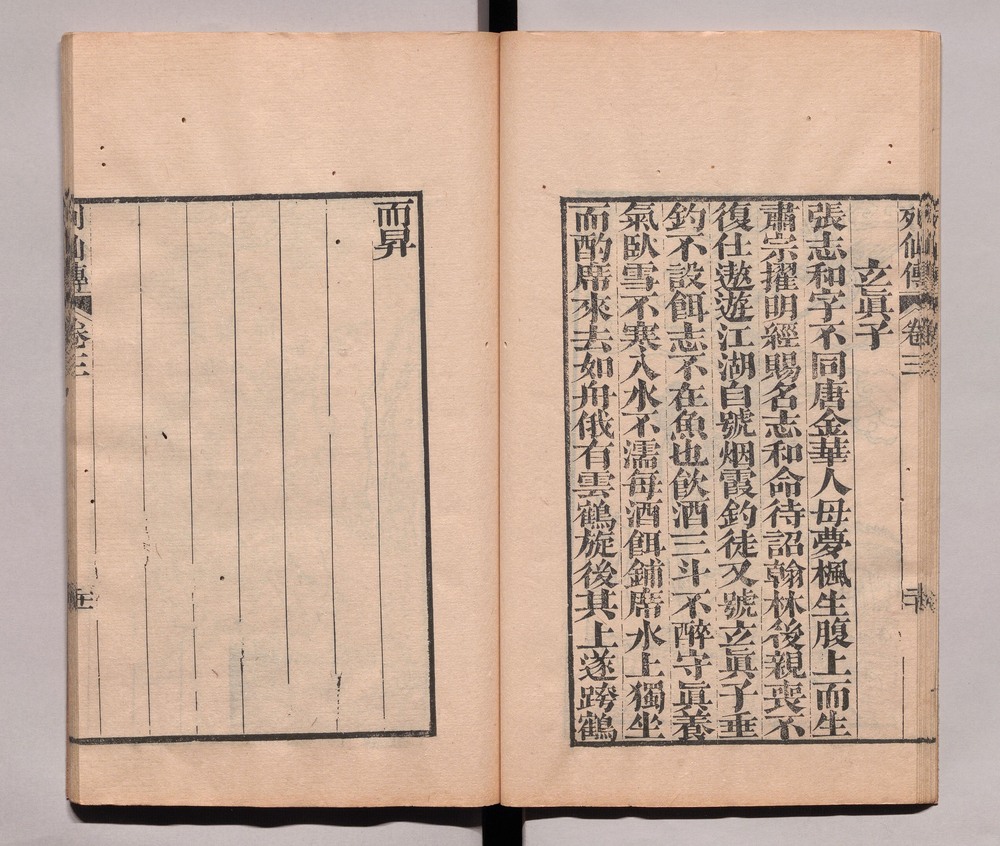 列仙傳 卷三
玄眞子
張志和字不同唐金華人母夢楓生腹上而生
肅宗擢明經賜名志和命待詔翰林後親喪不
復仕遨遊江湖自號烟霞釣徒又號玄眞子垂
釣不設餌志不在魚也飮酒三斗不醉守眞養
氣臥雪不寒入水不濡每酒餌鋪席水上獨坐
而酌席來去如舟俄有雲鶴旋後其上遂跨鶴
而昇
列仙傳 卷三